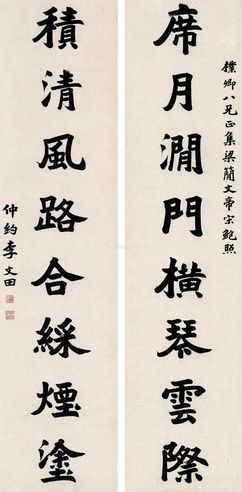 樸卿八兄正集梁簡文帝宋鮑照
席月澗門橫琴雲際
積清風路合綵煙塗
仲約李文田